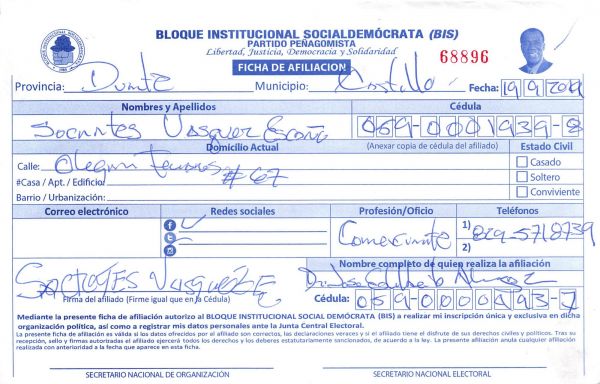 BLOQUE INSTITUCIONAL SOCIALDEMÓCRATA (BIS)
PARTIDO PEÑAGOMISTA
Libertad, Justicia, Democracia y Solidaridad
68896
FICHA DE AFILIACION
Provincia: Duarte Municipio: Castillo Fecha: 19/9/2019
Nombres y Apellidos Cédula
Socrates Vasquez 059-0001939-8
Domicilio Actual (Anexar copia de cédula del afiliado) Estado Civil
Calle: Olegario Tenares Casado
#Casa / Apt. / Edificio: #67 Soltero
Barrio / Urbanización: Conviviente
Correo electrónico Redes sociales Profesión/Oficio Teléfonos
Comerciante 1) 829-5718739
2)
Nombre completo de quien realiza la afiliación
Socrates Vasquez E Dr. Jose
Firma del afiliado (Firme igual que en la Cédula) Cédula: 059-0000493-7
Mediante la presente ficha de afiliación autorizo al BLOQUE INSTITUCIONAL SOCIAL DEMÓCRATA (BIS) a realizar mi inscripción única y exclusiva en dicha
organización política, así como a registrar mis datos personales ante la Junta Central Electoral.
La presente ficha de afiliación es válida si los datos ofrecidos por el afiliado son correctos, las declaraciones veraces y si el afiliado tiene el disfrute de sus derechos civiles y políticos. Tras su
recepción, sello y firmas autorizadas el afiliado ejercerá todos los derechos y los deberes estatutariamente sancionados, de acuerdo a la ley. La presente afiliación anula cualquier afiliación
realizada con anterioridad a la fecha que aparece en esta ficha.
SECRETARIO NACIONAL DE ORGANIZACIÓN SECRETARIO NACIONAL ELECTORAL